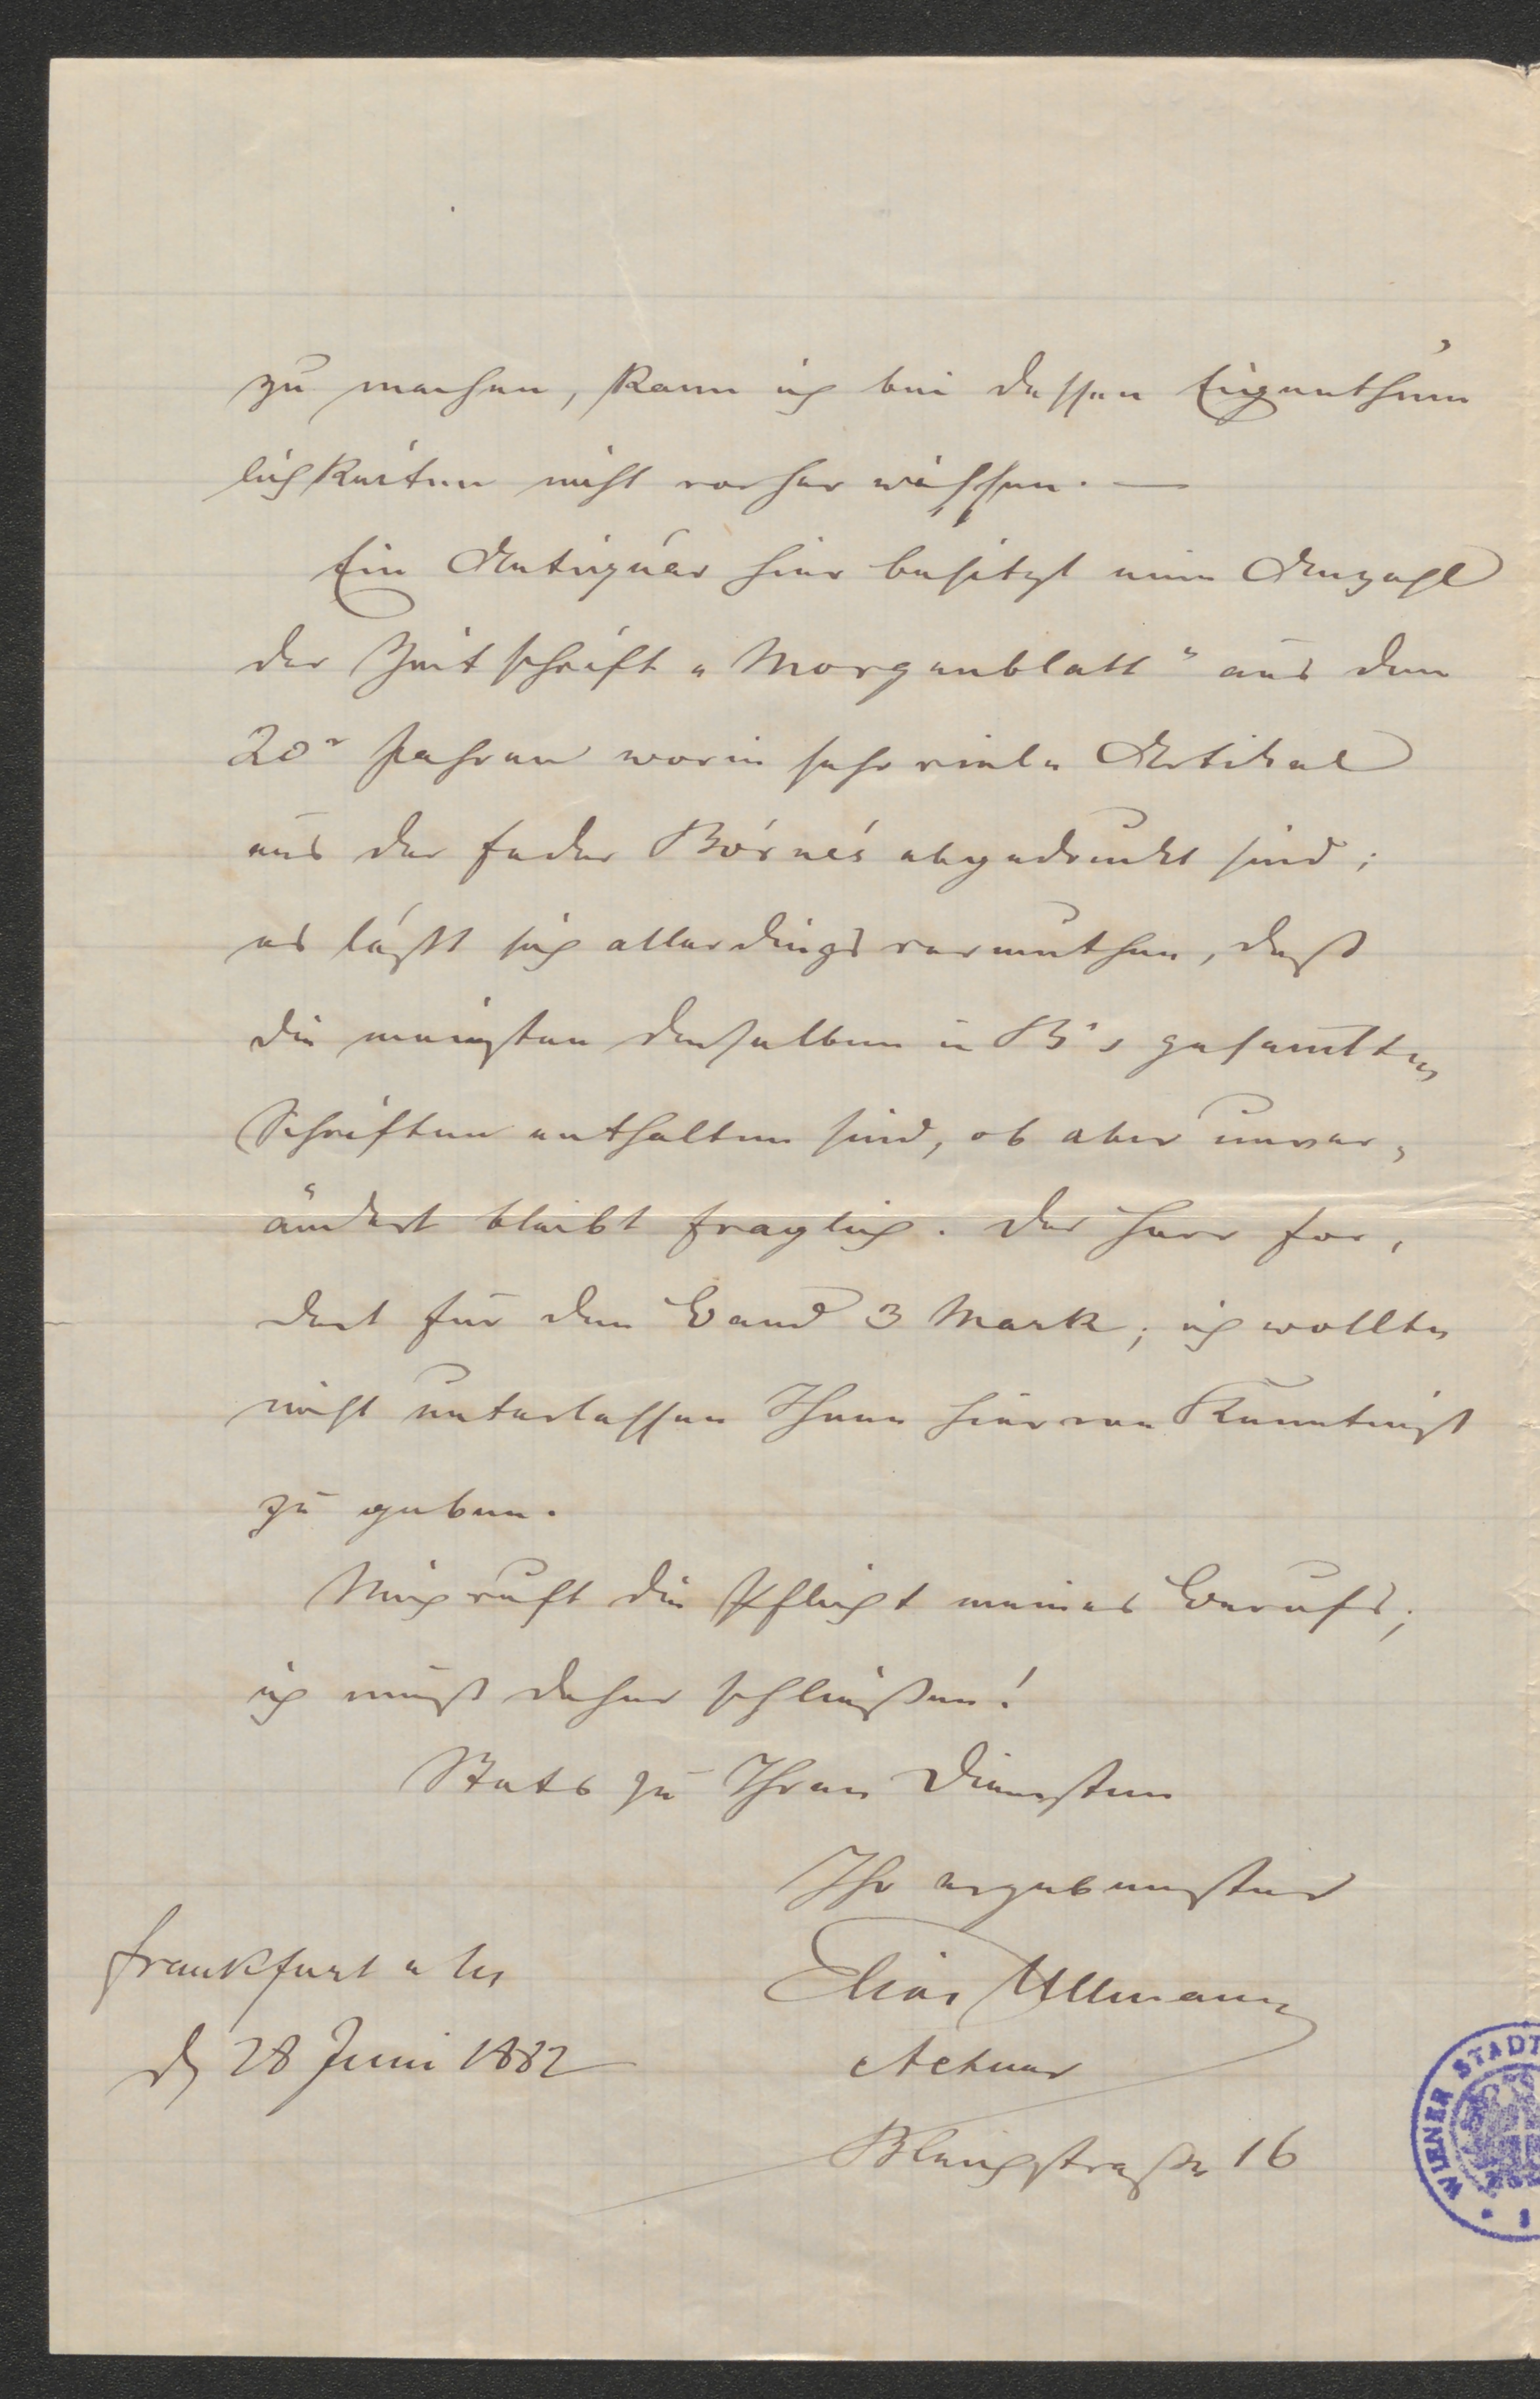 zu machen, kann ich bei dessen Eigenthüm
lichkeiten nicht vorher wissen. —
Ein Antiquar hier besitzt eine Anzahl
der Zeitschrift „Morgenblatt“ aus den
20r Jahren worin sehr viele Artikel
aus der Feder Börne's abgedruckt sind;
es läßt sich allerdings vermuthen, daß
die meisten derselben in B's gesamelten
Schriften enthalten sind, ob aber unver-
ändert bleibt fraglich. Der Herr for-
dert für den Band 3 Mark; ich wollte
nicht unterlassen Ihnen hiervon Kenntniß
zu geben.
Mich ruft die Pflicht meines Berufs;
ich muß daher schließen!
Stets zu Ihren Diensten
Ihr ergebenster
Elias Ullmann
Actuar
Bleichstraße 16
Frankfurt a M
d 28 Juni 1882
WIENER STADT